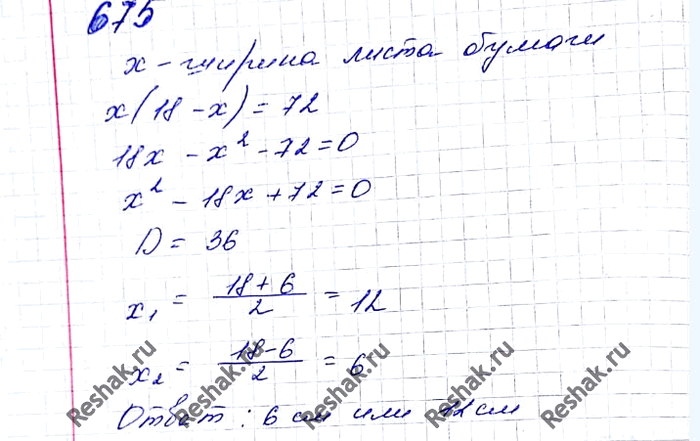 675
x - ширина листа бумаги
x(18 - x) = 72
18x - x² - 72 = 0
x² - 18x + 72 = 0
D = 36
x₁ = (18 + 6)/2 = 12
x₂ = (18 - 6)/2 = 6
Ответ: 6 см или 12 см
Reshak.ru Reshak.ru Reshak.ru Reshak.ru Reshak.ru Reshak.ru